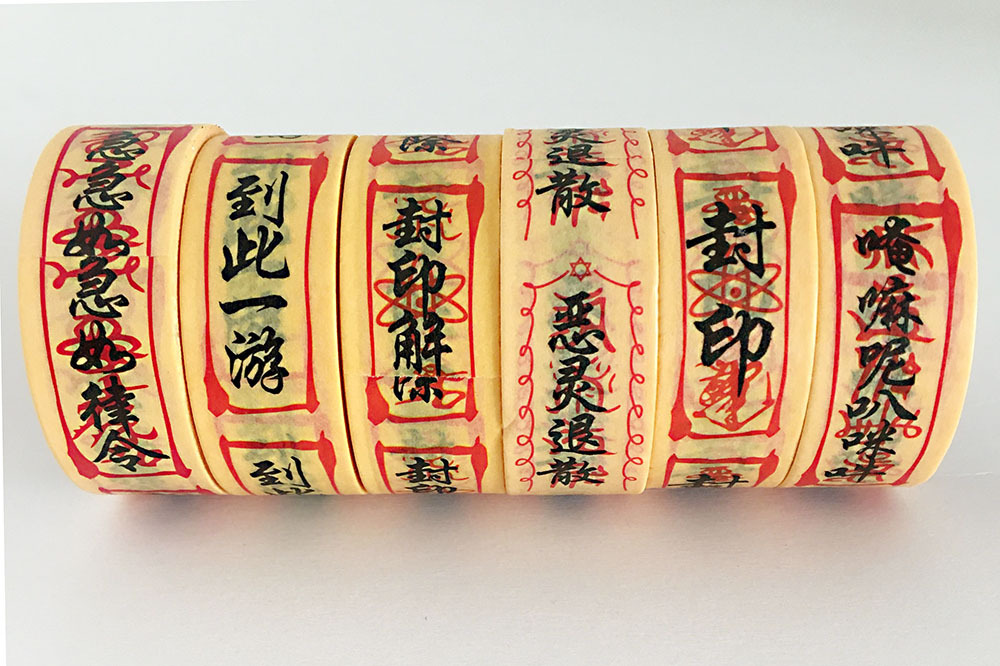 急急如急如律令
到此一游
到此
除
封印解除
封印
灵退散
恶灵退散
封印
封
吽
唵嘛呢叭咪吽